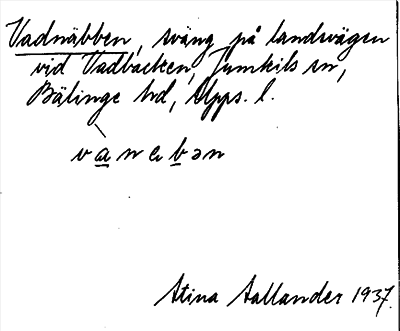 Vadnäbben, sväng på landsvägen
vid Vadbacken, Jumkils sn,
Bälinge hd, Upps. l.
vanɛbən
Stina Aallander 1937.